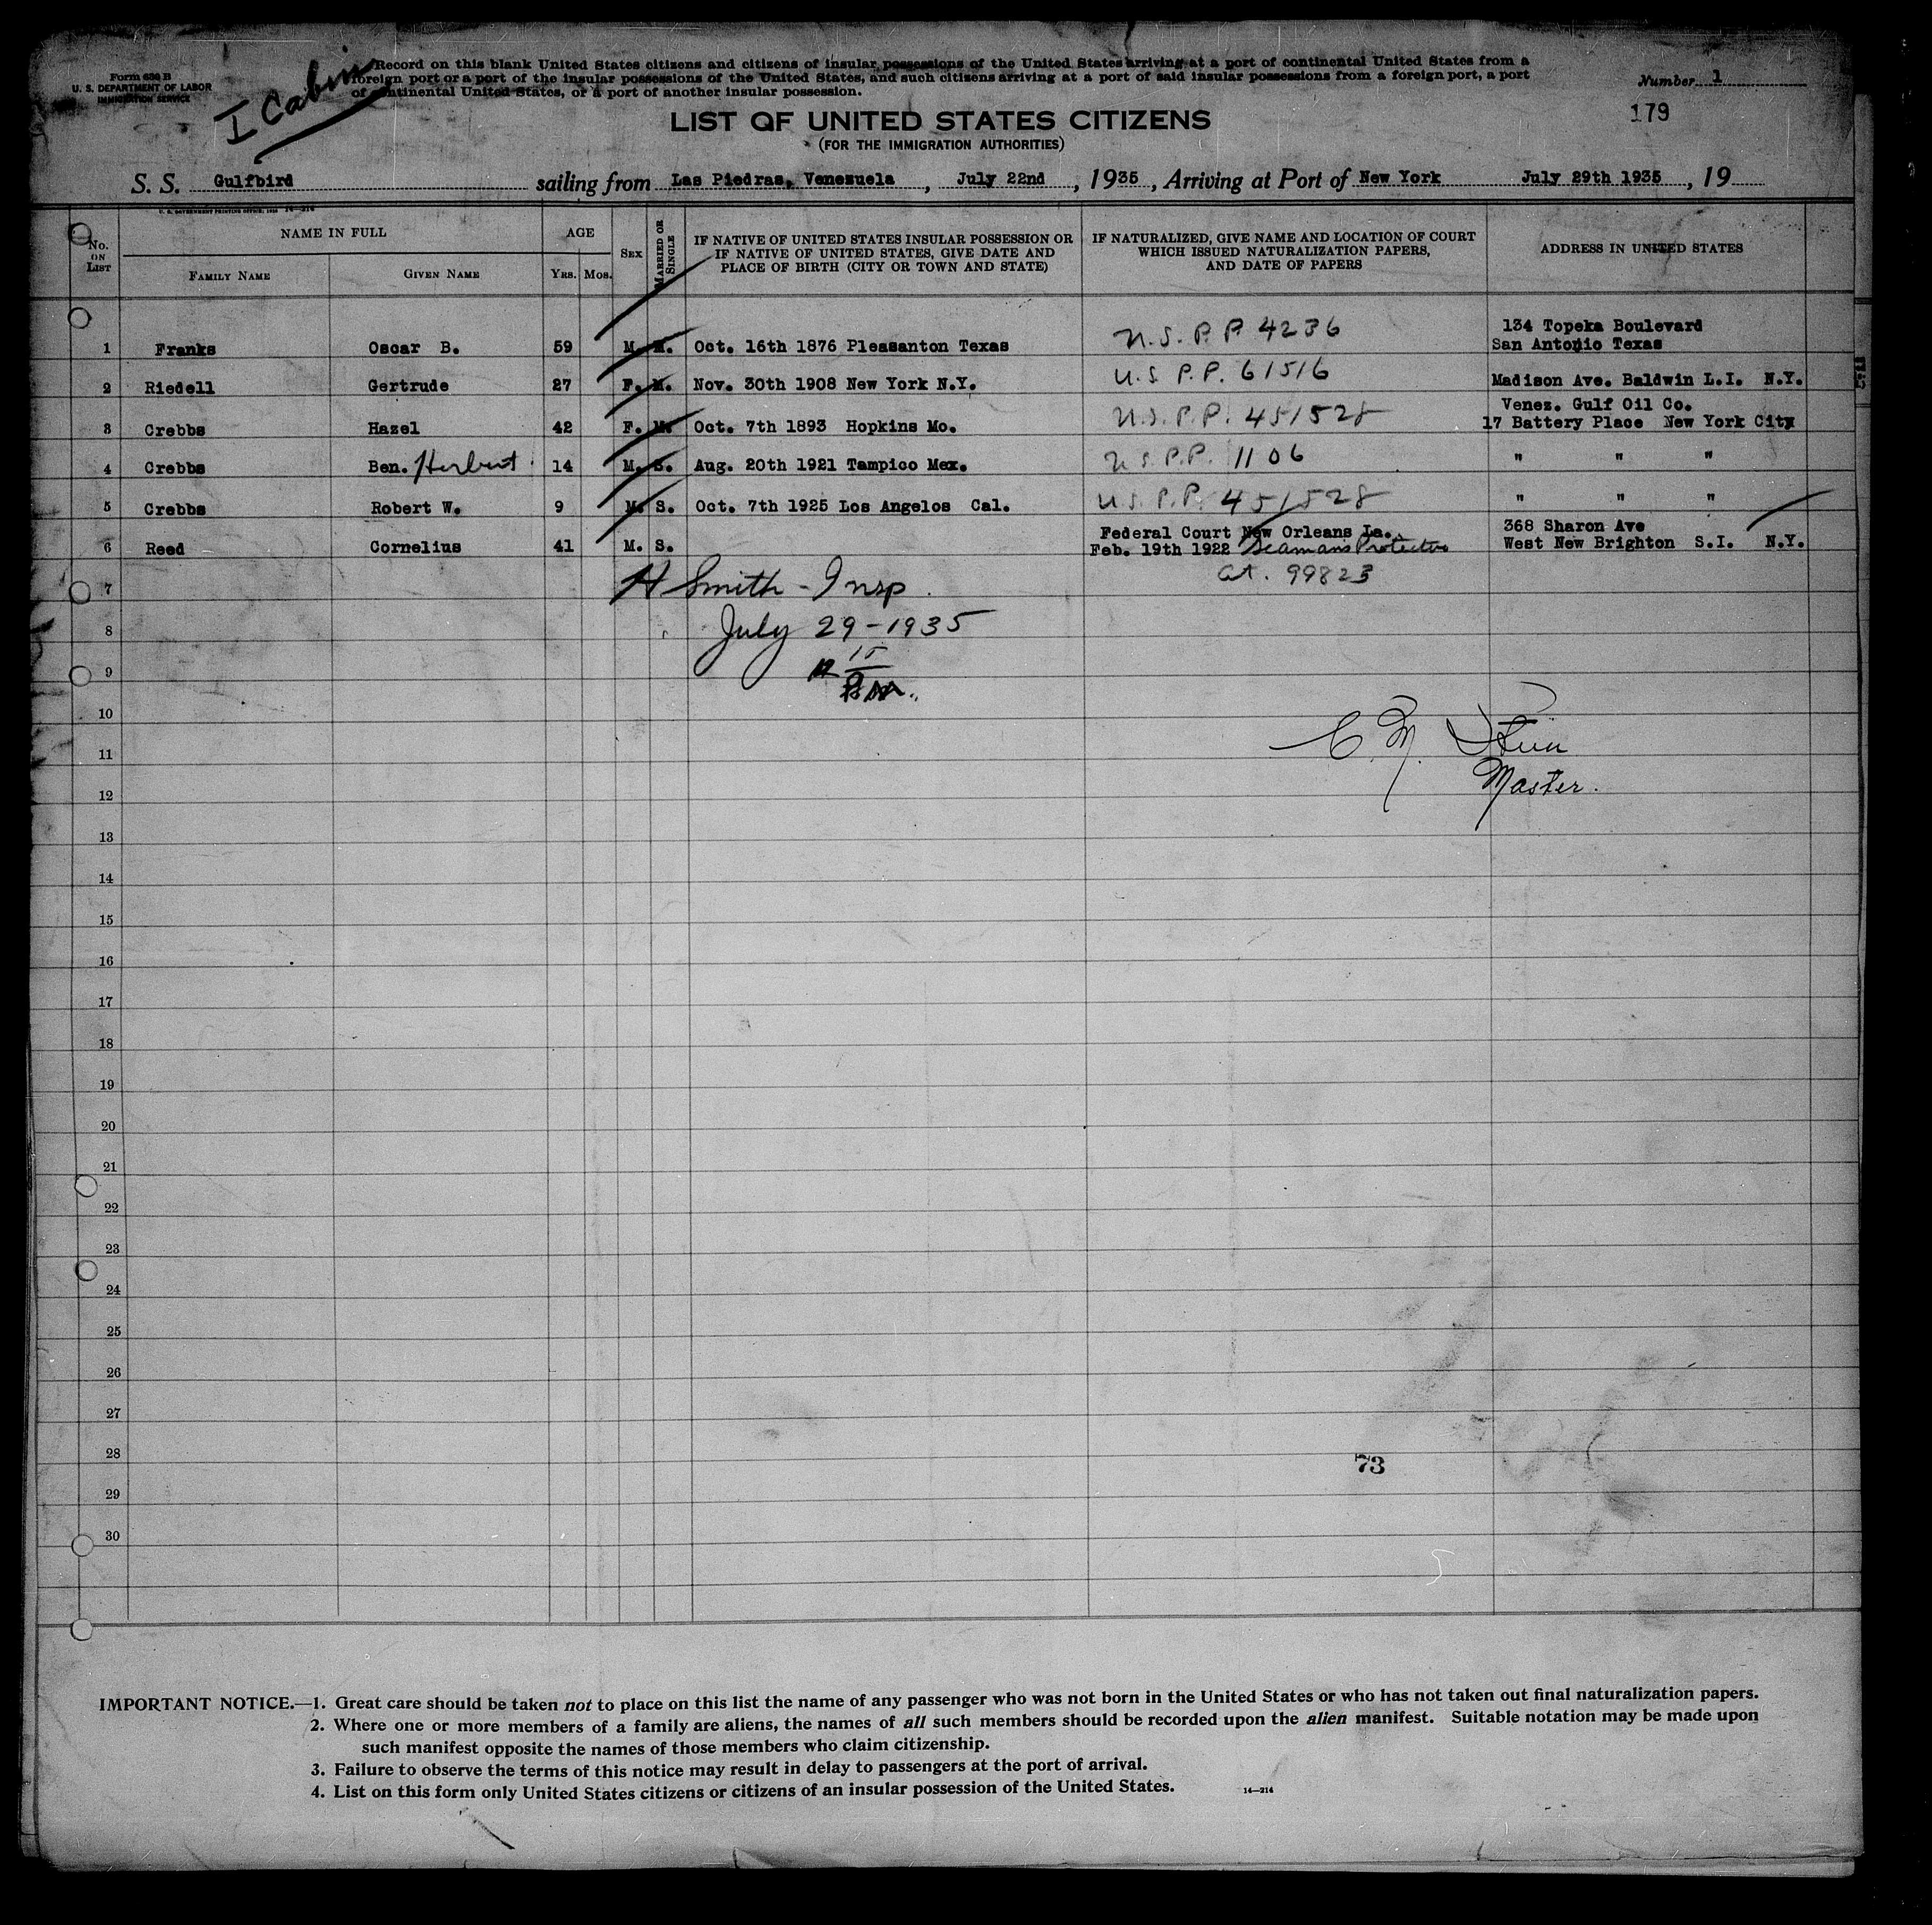 Form 630 B
U. S. DEPARTMENT OF LABOR
IMMIGRATION SERVICE
I Cabin
Record on this blank United States citizens and citizens of insular possessions of the United States arriving at a port of continental United States from a
foreign port or a port of the insular possessions of the United States, and such citizens arriving at a port of said insular possessions from a foreign port, a port
of continental United States, or a port of another insular possession.
Number 1
179
LIST OF UNITED STATES CITIZENS
(FOR THE IMMIGRATION AUTHORITIES)
S. S. Gulfbird sailing from Las Piedras, Venezuela, July 22nd, 1935, Arriving at Port of New York July 29th 1935, 19
No. ON LIST
NAME IN FULL
FAMILY NAME GIVEN NAME
AGE
YRS. MOS.
SEX
MARRIED OR SINGLE
IF NATIVE OF UNITED STATES INSULAR POSSESSION OR
IF NATIVE OF UNITED STATES, GIVE DATE AND
PLACE OF BIRTH (CITY OR TOWN AND STATE)
IF NATURALIZED, GIVE NAME AND LOCATION OF COURT
WHICH ISSUED NATURALIZATION PAPERS,
AND DATE OF PAPERS
ADDRESS IN UNITED STATES
134 Topeka Boulevard
1 Franks Oscar B. 59 M. M. Oct. 16th 1876 Pleasanton Texas U.S. P.P. 4236 San Antonio Texas
2 Riedell Gertrude 27 F. M. Nov. 30th 1908 New York N.Y. U.S. P.P. 61516 Madison Ave. Baldwin L.I. N.Y.
Venez. Gulf Oil Co.
3 Crebbs Hazel 42 F. M. Oct. 7th 1893 Hopkins Mo. U.S. P.P. 451528 17 Battery Place New York City
4 Crebbs Ben. Herbert 14 M. S. Aug. 20th 1921 Tampico Mex. U.S. P.P. 1106 " " "
5 Crebbs Robert W. 9 M. S. Oct. 7th 1925 Los Angelos Cal. U.S. P.P. 451528 " " "
Federal Court New Orleans La. 368 Sharon Ave
6 Reed Cornelius 41 M. S. Feb. 19th 1922 Seamans Protection West New Brighton S.I. N.Y.
7 H Smith - Insp. 99823
8 July 29-1935
9 15
10
11 C. M.
12 Master.
13
14
15
16
17
18
19
20
21
22
23
24
25
26
27
28 73
29
30
IMPORTANT NOTICE.—1. Great care should be taken not to place on this list the name of any passenger who was not born in the United States or who has not taken out final naturalization papers.
2. Where one or more members of a family are aliens, the names of all such members should be recorded upon the alien manifest. Suitable notation may be made upon
such manifest opposite the names of those members who claim citizenship.
3. Failure to observe the terms of this notice may result in delay to passengers at the port of arrival.
4. List on this form only United States citizens or citizens of an insular possession of the United States.
14—214